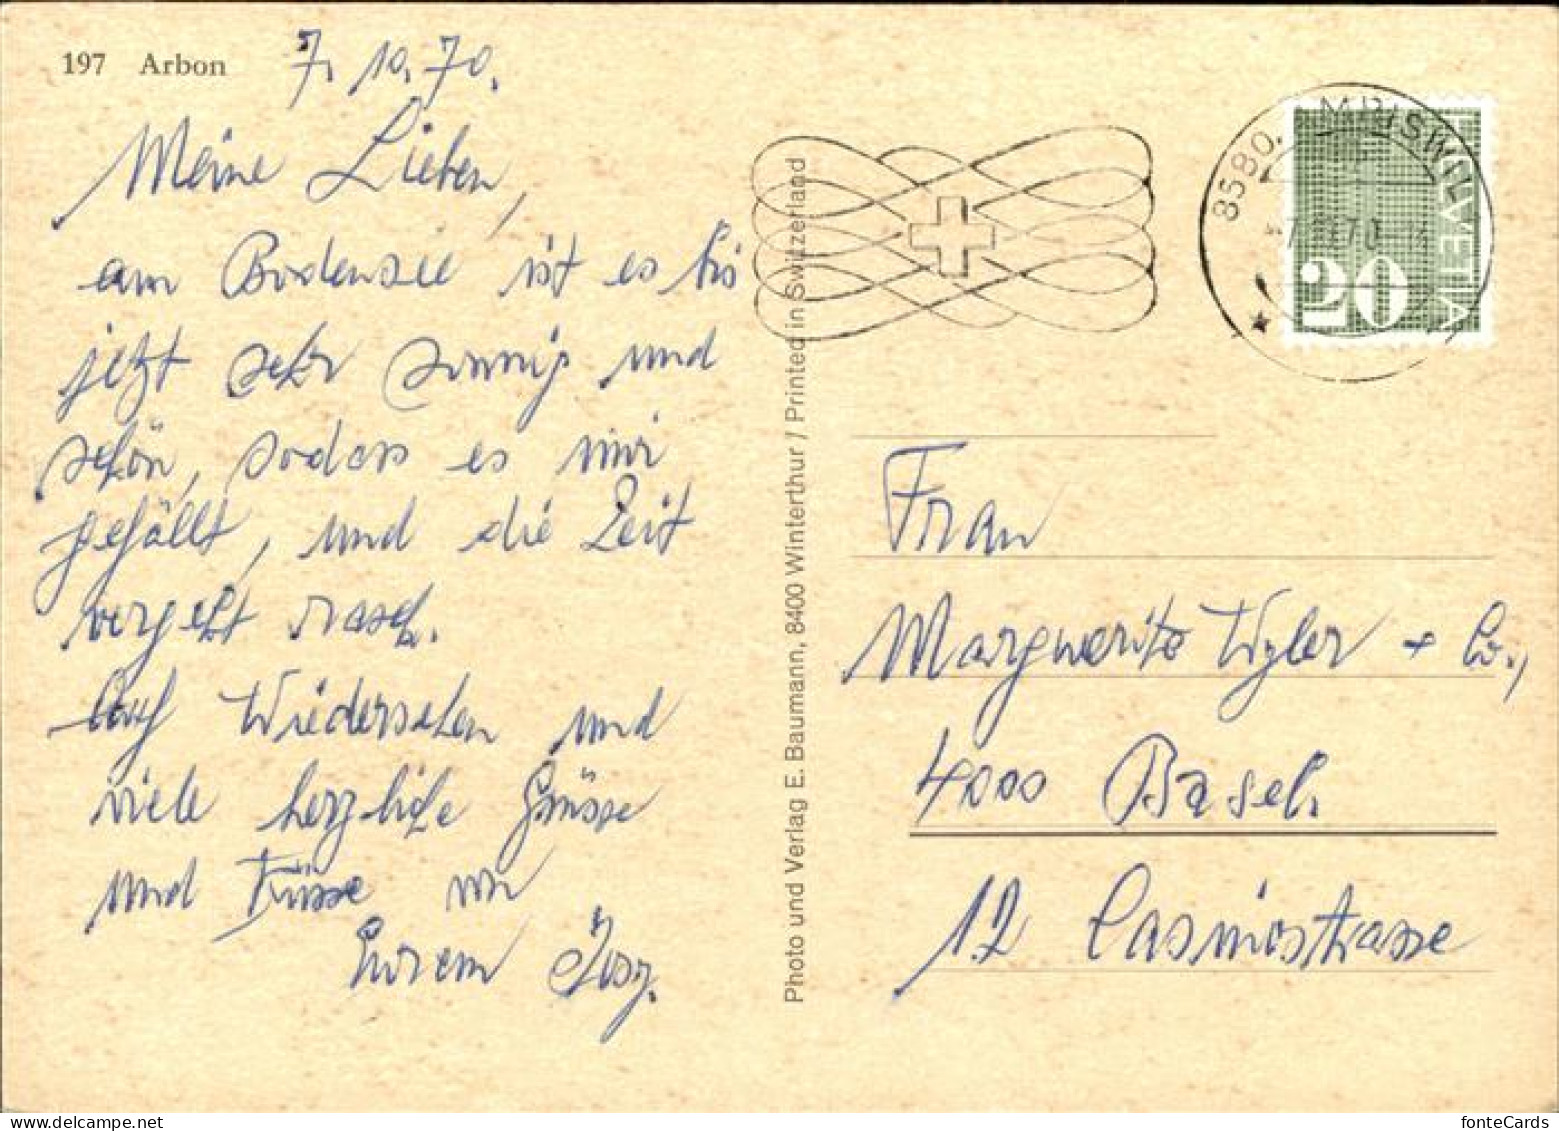 197 Arbon 7.10.70.
Meine Lieben,
am Bodensee ist es bis
jetzt sehr sonnig und
schön, sodass es mir
gefällt, und die Zeit
vergeht rasch.
Auf Wiedersehen und
viele herzliche Grüsse
und Küsse von
Eurem
Photo und Verlag E. Baumann, 8400 Winterthur / Printed in Switzerland
8580
HELVETIA
20
Frau
Marguerite Wyler + Co.,
4000 Basel.
12 Casinostrasse
fonteCards